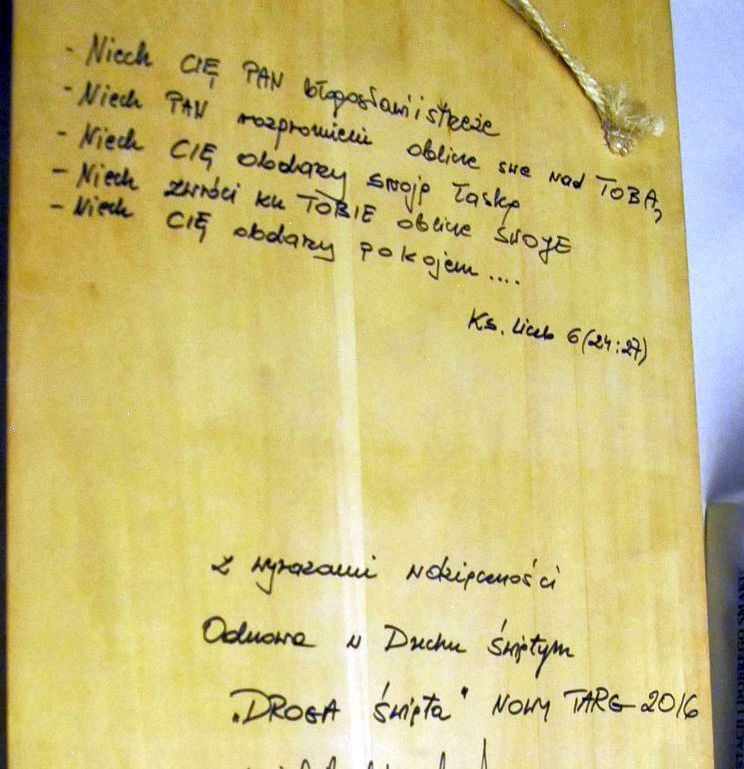 - Niech CIĘ PAN błogosławi i strzeże
- Niech PAN rozpromieni oblicze swe nad TOBĄ,
- Niech CIĘ obdarzy swoją łaską
- Niech zwróci ku TOBIE oblicze SWOJE
- Niech CIĘ obdarzy pokojem....
Ks. Liczb 6(24:27)
z wyrazami wdzięczności
Odnowa w Duchu Świętym
"DROGA Święta" NOWY TARG 2016
STACJI I DOBREGO SMAKU